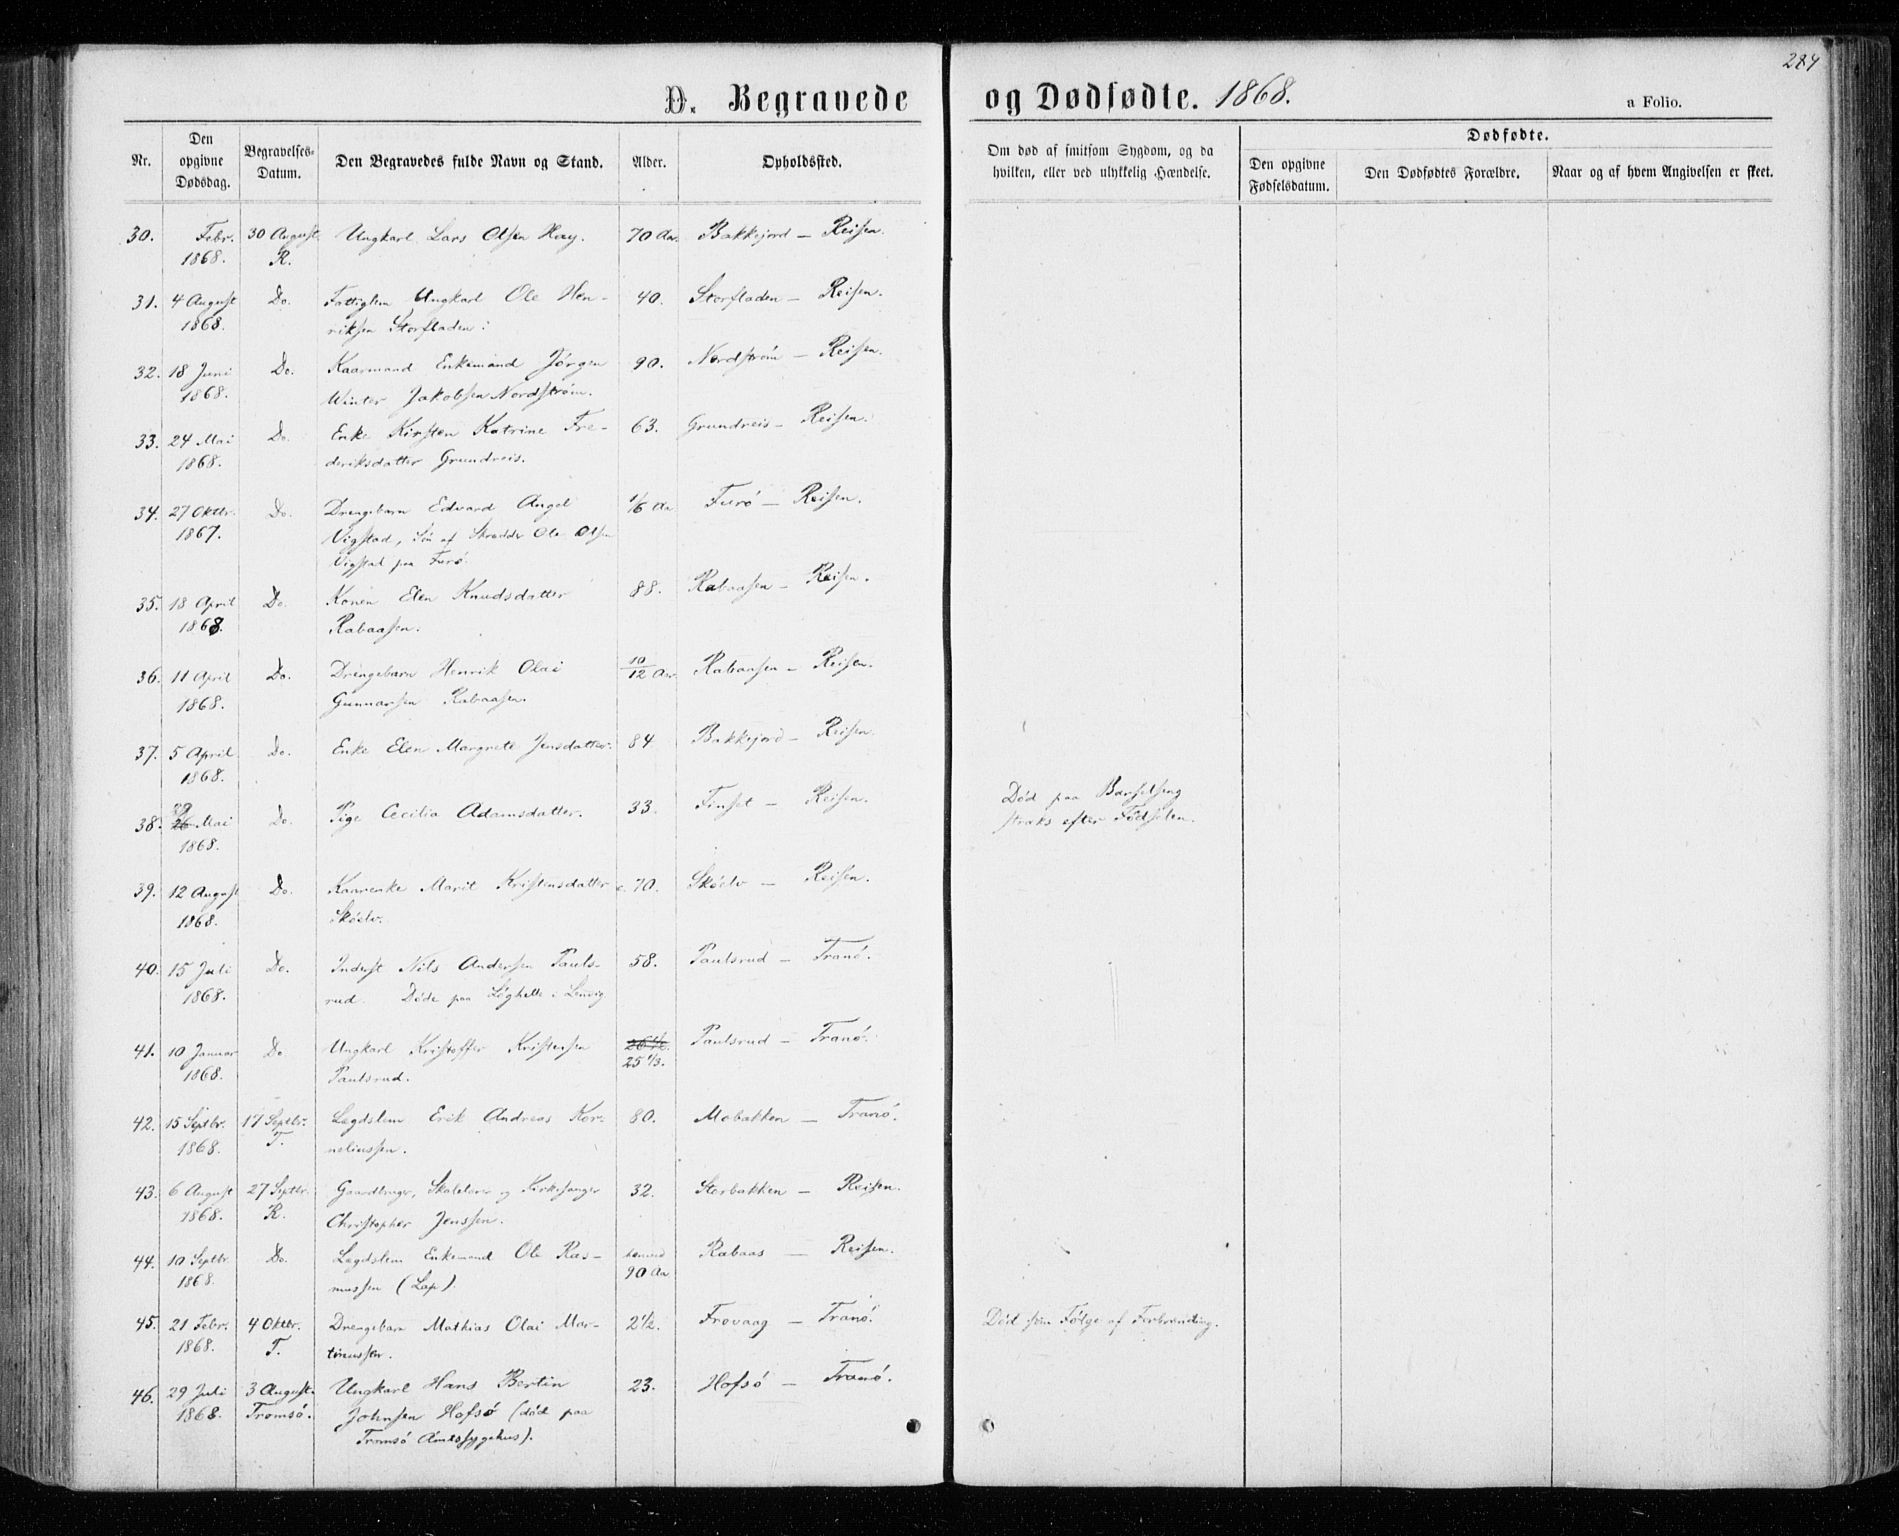 284
D. Begravede og Dødfødte. 1868.
a Folio.
Nr.
Den opgivne Dødsdag.
Begravelses-Datum.
Den Begravedes fulde Navn og Stand.
Alder.
Opholdssted.
Om død af smitsom Sygdom, og da
hvilken, eller ved ulykkelig Hændelse.
Dødfødte.
Den opgivne Fødselsdatum.
Den Dødfødtes Forældre.
Naar og af hvem Angivelsen er skeet.
30. Febr. 30 August Ungkarl Lars Olsen 70 Aar. Bakkejord — Reisen.
1868. R.
31. 4 August Do. Fattiglem Ungkarl Ole Hen- 40. Storfladen — Reisen.
1868. riksen Storfladen.
32. 18 Juni Do. Kaarmand Enkemand Jörgen 90. Nordström — Reisen.
1868. Winter Jakobsen Nordström.
33. 24 Mai Do. Enke Kirsten Katrine Fre- 63. Grundreis — Reisen.
1868. deriksdatter Grundreis.
34. 27 Oktbr. Do. Drengebarn Edvard Angel 1/6 Aar Furö — Reisen.
1867. Vigstad, Sön af Skredder Ole Olsen
Vigstad paa Furö.
35. 18 April Do. Konen Elen Knudsdatter 88. Rabaasen — Reisen.
1868. Rabaasen.
36. 11 April Do. Drengebarn Henrik Olai 10/12 Aar. Rabaasen — Reisen.
1868. Gunnarsen Rabaasen.
37. 5 April Do. Enke Elen Margrete Jensdatter. 84. Bakkejord — Reisen.
1868.
38. 26 Mai Do. Pige Cecilia Adamsdatter. 33. Finset — Reisen. Död paa Barselseng
1868. straks efter Födselen.
39. 12 August Do. Kaarenke Marit Kristensdatter c. 70. Sköelv — Reisen.
1868. Sköelv.
40. 15 Juli Do. Inderst Nils Andersen Pauls- 58. Paulsrud — Tranö.
1868. rud. Döde paa i Lenvig
41. 10 Januar Do Ungkarl Kristoffer Kristensen Paulsrud — Tranö.
1868. Paulsrud. 25 1/3.
42. 15 Septbr. 17 Septbr. Lægdslem Erik Andreas Kor- 80. Mobakken — Tranö.
1868. T. neliussen.
43. 6 August 27 Septbr. Gaardbruger, Skolelærer og Kirkesanger 32. Storbakken — Reisen.
1868. R. Christopher Jenssen.
44. 10 Septbr Do. Lægdslem Enkemand Ole Ras- Rabaas — Reisen.
1868. mussen (Lap). 90 Aar
45. 21 Febr. 4 Oktbr. Drengebarn Mathias Olai Mar- 2 1/2. Frovaag — Tranö. Död som Fölge af Forbrænding.
1868. T. tinussen.
46. 29 Juli 3 August. Ungkarl Hans Bertin 23. Hofsö — Tranö.
1868. Tromsö. Johnsen Hofsö (död paa
Tromsö Amtssygehus).